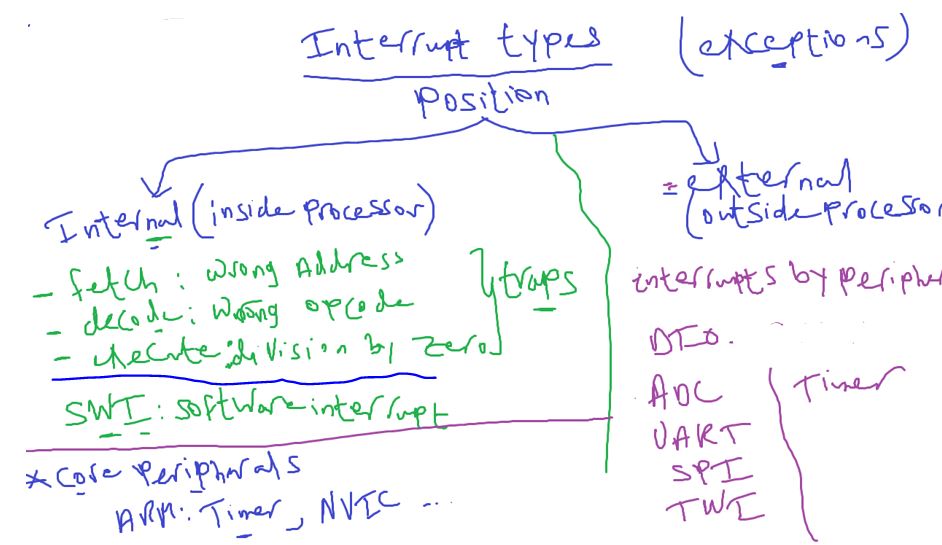 Interrupt types (exceptions)
Position
Internal (inside processor)
- fetch: wrong Address
- decode: wrong opcode
- execute: division by zero
traps
SWI: software interrupt
* Core Peripherals
ARM: Timer, NVIC ...
= external
(outside processor
interrupts by peripher
DIO.
ADC
UART
SPI
TWI
Timer